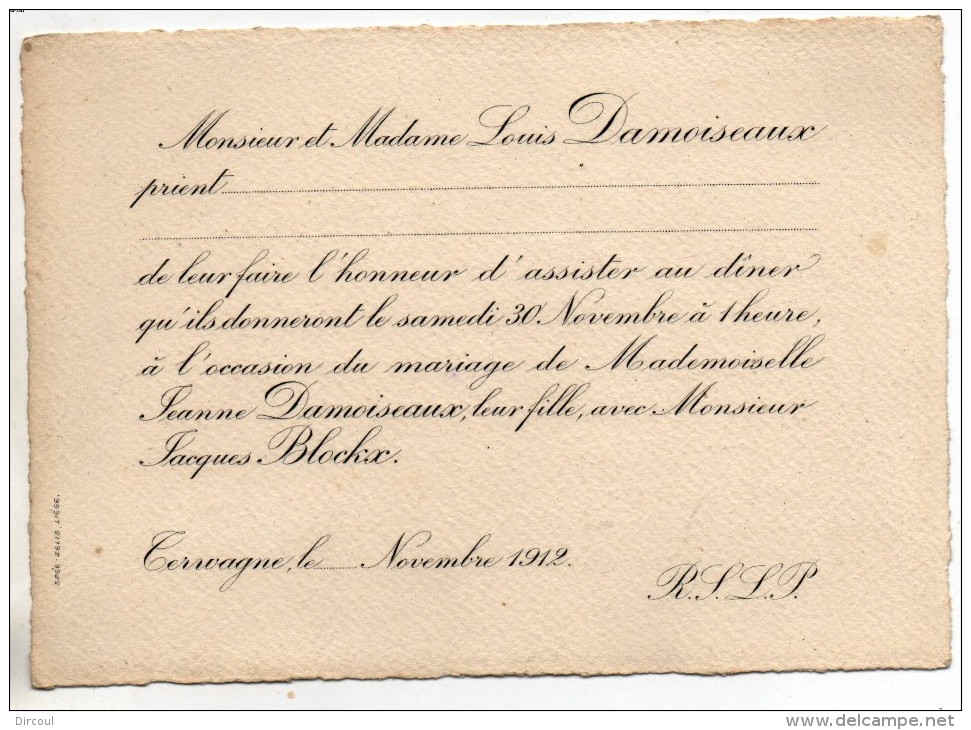 Monsieur et Madame Louis Damoiseaux
prient
de leur faire l'honneur d'assister au dîner
qu'ils donneront le samedi 30 Novembre à 1 heure,
à l'occasion du mariage de Mademoiselle
Jeanne Damoiseaux, leur fille, avec Monsieur
Jacques Blockx.
Terwagne, le Novembre 1912.
R.S.L.P.
SPÉE-ZELIS, LIÉGE.
Dircoul
www.delcampe.net